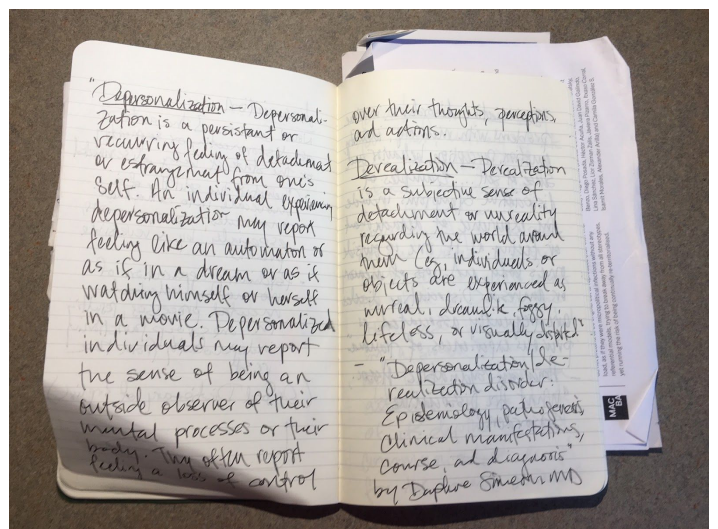 "Depersonalization – Depersonali-
zation is a persistant or
recurring feeling of detachment
or estrangement from one's
self. An individual experiencing
depersonalization may report
feeling like an automaton or
as if in a dream or as if
watching himself or herself
in a movie. Depersonalized
individuals may report
the sense of being an
outside observer of their
mental processes or their
body. They often report
feeling a loss of control
over their thoughts, perceptions,
and actions.
Derealization – Derealization
is a subjective sense of
detachment or unreality
regarding the world around
them (eg, individuals or
objects are experienced as
unreal, dreamlike, foggy,
lifeless, or visually distorted"
– "Depersonalization/de-
realization disorder:
Epidemiology, pathogenesis,
Clinical manifestations,
course, and diagnosis"
by Daphne Simeon, MD
load, as if they were micropolitical infections without any
referential models, trying to break away from all stereotypes,
yet running the risk of being continually re-territorialised.
MAC
BA